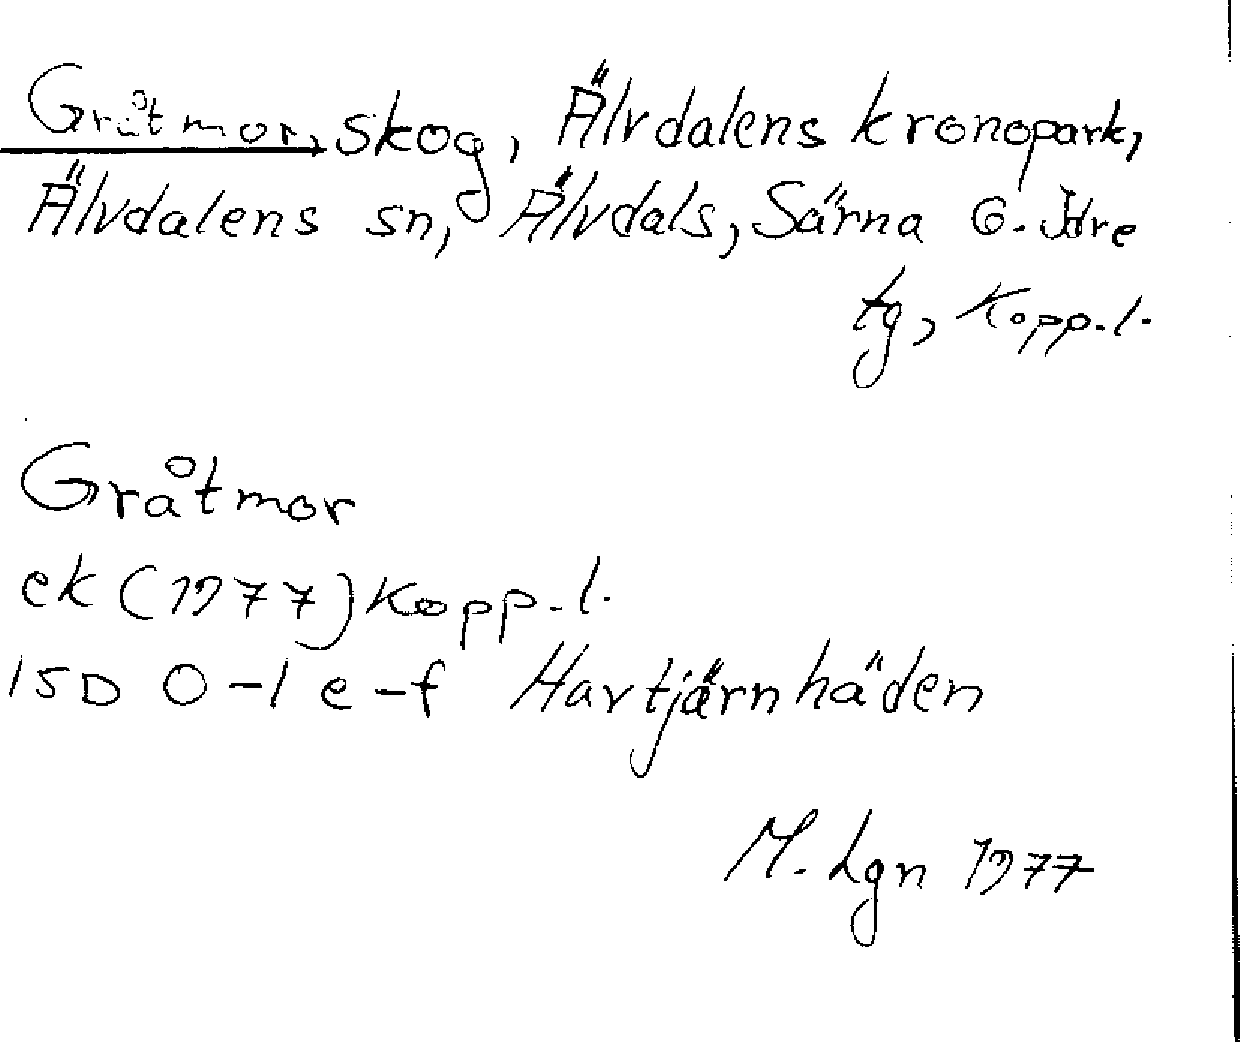 Gråtmor, skog, Älvdalens kronopark,
Älvdalens sn, Älvdals, Särna o. Idre
tg, Kopp.l.
Gråtmor
ek (1977) Kopp.l.
15D 0-1 e-f Havtjärnhäden
M. Lgn 1977